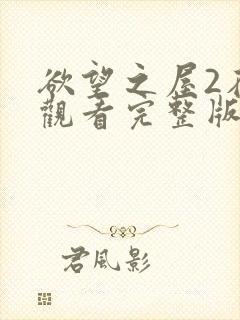 欲望之屋2
觀看完整版
君風影